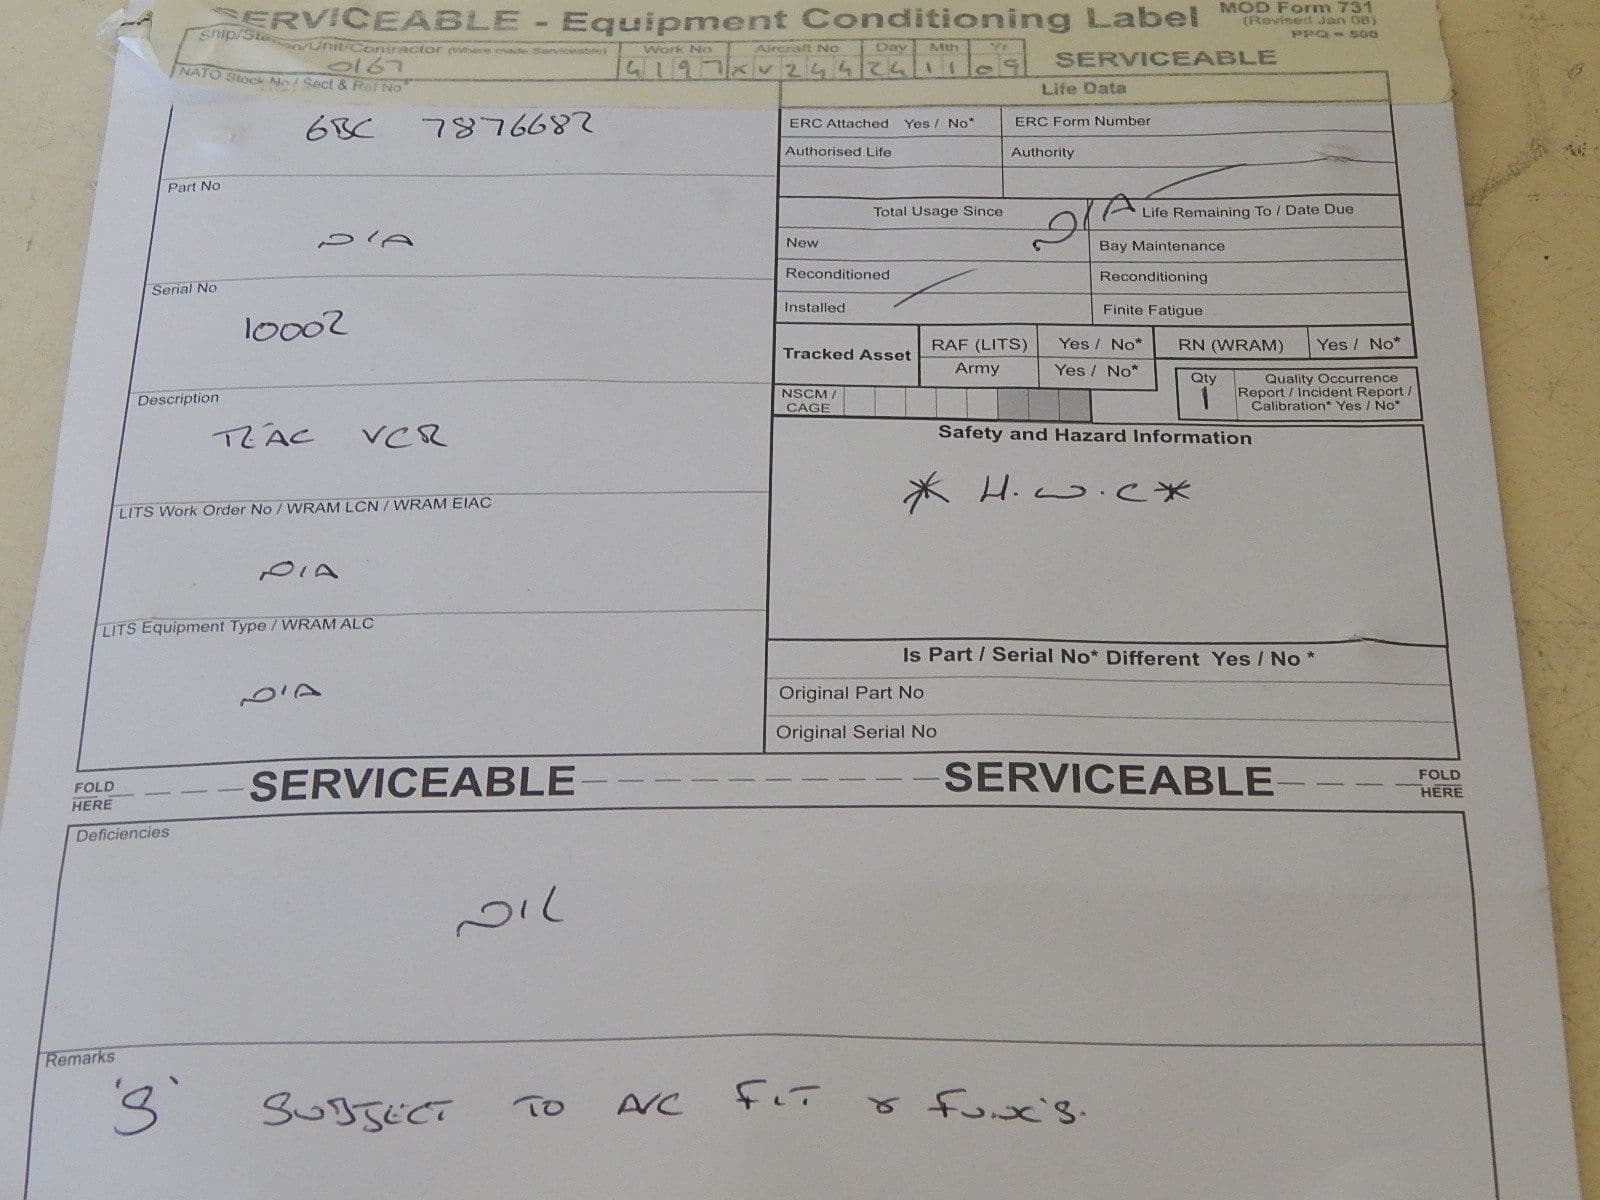 SERVICEABLE - Equipment Conditioning Label
MOD Form 731
(Revised Jan 08)
PPQ = 500
Ship/Station/Unit/Contractor (Where made Serviceable)
0167
Work No
4197
Aircraft No
XV244
Day Mth Yr
24 11 09
SERVICEABLE
NATO Stock No / Sect & Ref No*
6BC 7876682
Part No
N/A
Serial No
10002
Description
VCR
LITS Work Order No / WRAM LCN / WRAM EIAC
N/A
LITS Equipment Type / WRAM ALC
N/A
Life Data
ERC Attached Yes / No* ERC Form Number
Authorised Life Authority
N/A
Total Usage Since Life Remaining To / Date Due
New Bay Maintenance
Reconditioned Reconditioning
Installed Finite Fatigue
Tracked Asset RAF (LITS) Yes / No* RN (WRAM) Yes / No*
Army Yes / No*
NSCM /
CAGE
Qty
1
Quality Occurrence
Report / Incident Report /
Calibration* Yes / No*
Safety and Hazard Information
* H.W.C *
Is Part / Serial No* Different Yes / No *
Original Part No
Original Serial No
FOLD
HERE
SERVICEABLE SERVICEABLE
FOLD
HERE
Deficiencies
NIL
Remarks
'S' SUBJECT TO A/C FIT & FUNC'S.